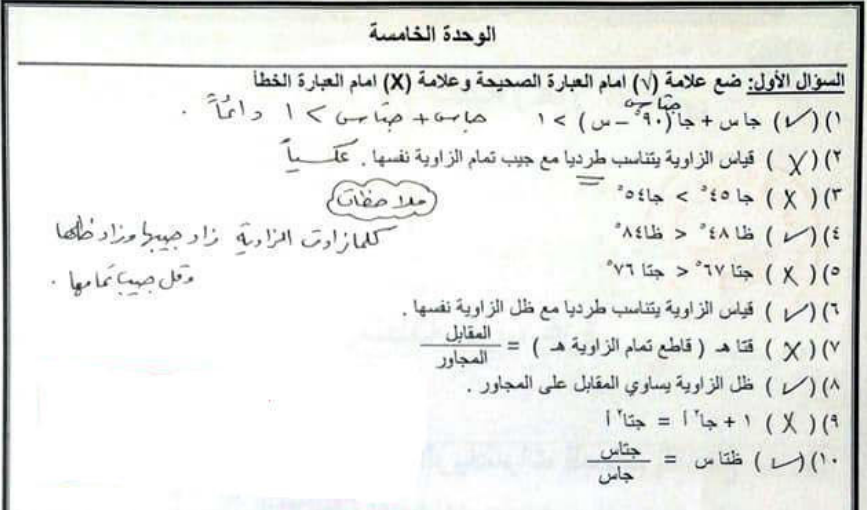 الوحدة الخامسة
السؤال الأول: ضع علامة (√) امام العبارة الصحيحة وعلامة (X) امام العبارة الخطأ
١) (✓) جا س + جا (٩٠° – س) > ١ جتا س جا س + جتا س > ١ دائماً .
٢) (X) قياس الزاوية يتناسب طرديا مع جيب تمام الزاوية نفسها . عكسياً
٣) (X) جا٤٥° > جا٥٤°
ملاحظات
٤) (✓) ظا ٤٨° < ظا٨٤° كلما زادت الزاوية زاد جيبها وزاد ظلها
٥) (X) جتا ٦٧° < جتا ٧٦° وقل جيب تمامها .
٦) (✓) قياس الزاوية يتناسب طرديا مع ظل الزاوية نفسها .
٧) (X) قتا هـ ( قاطع تمام الزاوية هـ ) = المقابل / المجاور
٨) (✓) ظل الزاوية يساوي المقابل على المجاور .
٩) (X) ١ + جا٢ أ = جتا٢ أ
١٠) (✓) ظتا س = جتاس / جاس